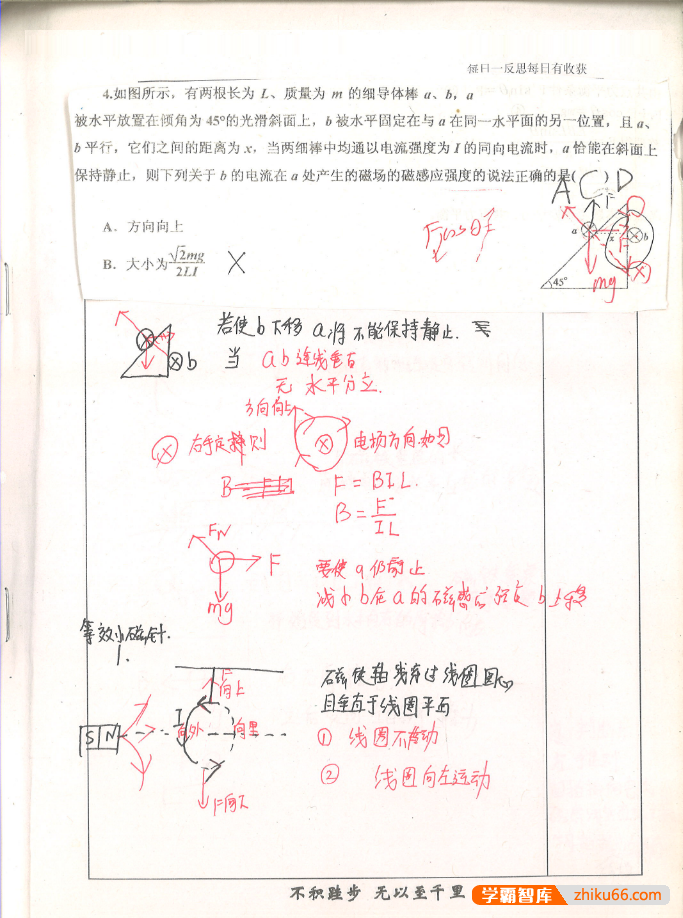 每日一反思每日有收获
4.如图所示，有两根长为 L、质量为 m 的细导体棒 a、b，a
被水平放置在倾角为 45°的光滑斜面上，b 被水平固定在与 a 在同一水平面的另一位置，且 a、
b 平行，它们之间的距离为 x，当两细棒中均通以电流强度为 I 的同向电流时，a 恰能在斜面上
保持静止，则下列关于 b 的电流在 a 处产生的磁场的磁感应强度的说法正确的是(
A (C) D
A．方向向上
Fcosθ
F
a x b
B．大小为 √2mg/2LI X
45° mg
若使b下移 a将不能保持静止.
b 当 ab连线垂直
无 水平分立.
方向向上
右手定则 电场方向如图
B= F=BIL.
B=F/IL
FN
F
mg
要使a仍静止
减小b在a的磁感应强度 b上移
等效小磁针.
1.
F向上
S N I 向外 向里
F向下
磁铁轴线穿过线圈圆心
且垂直于线圈平面
① 线圈不转动
② 线圈向左运动
不积跬步 无以至千里
学霸智库 zhiku66.com